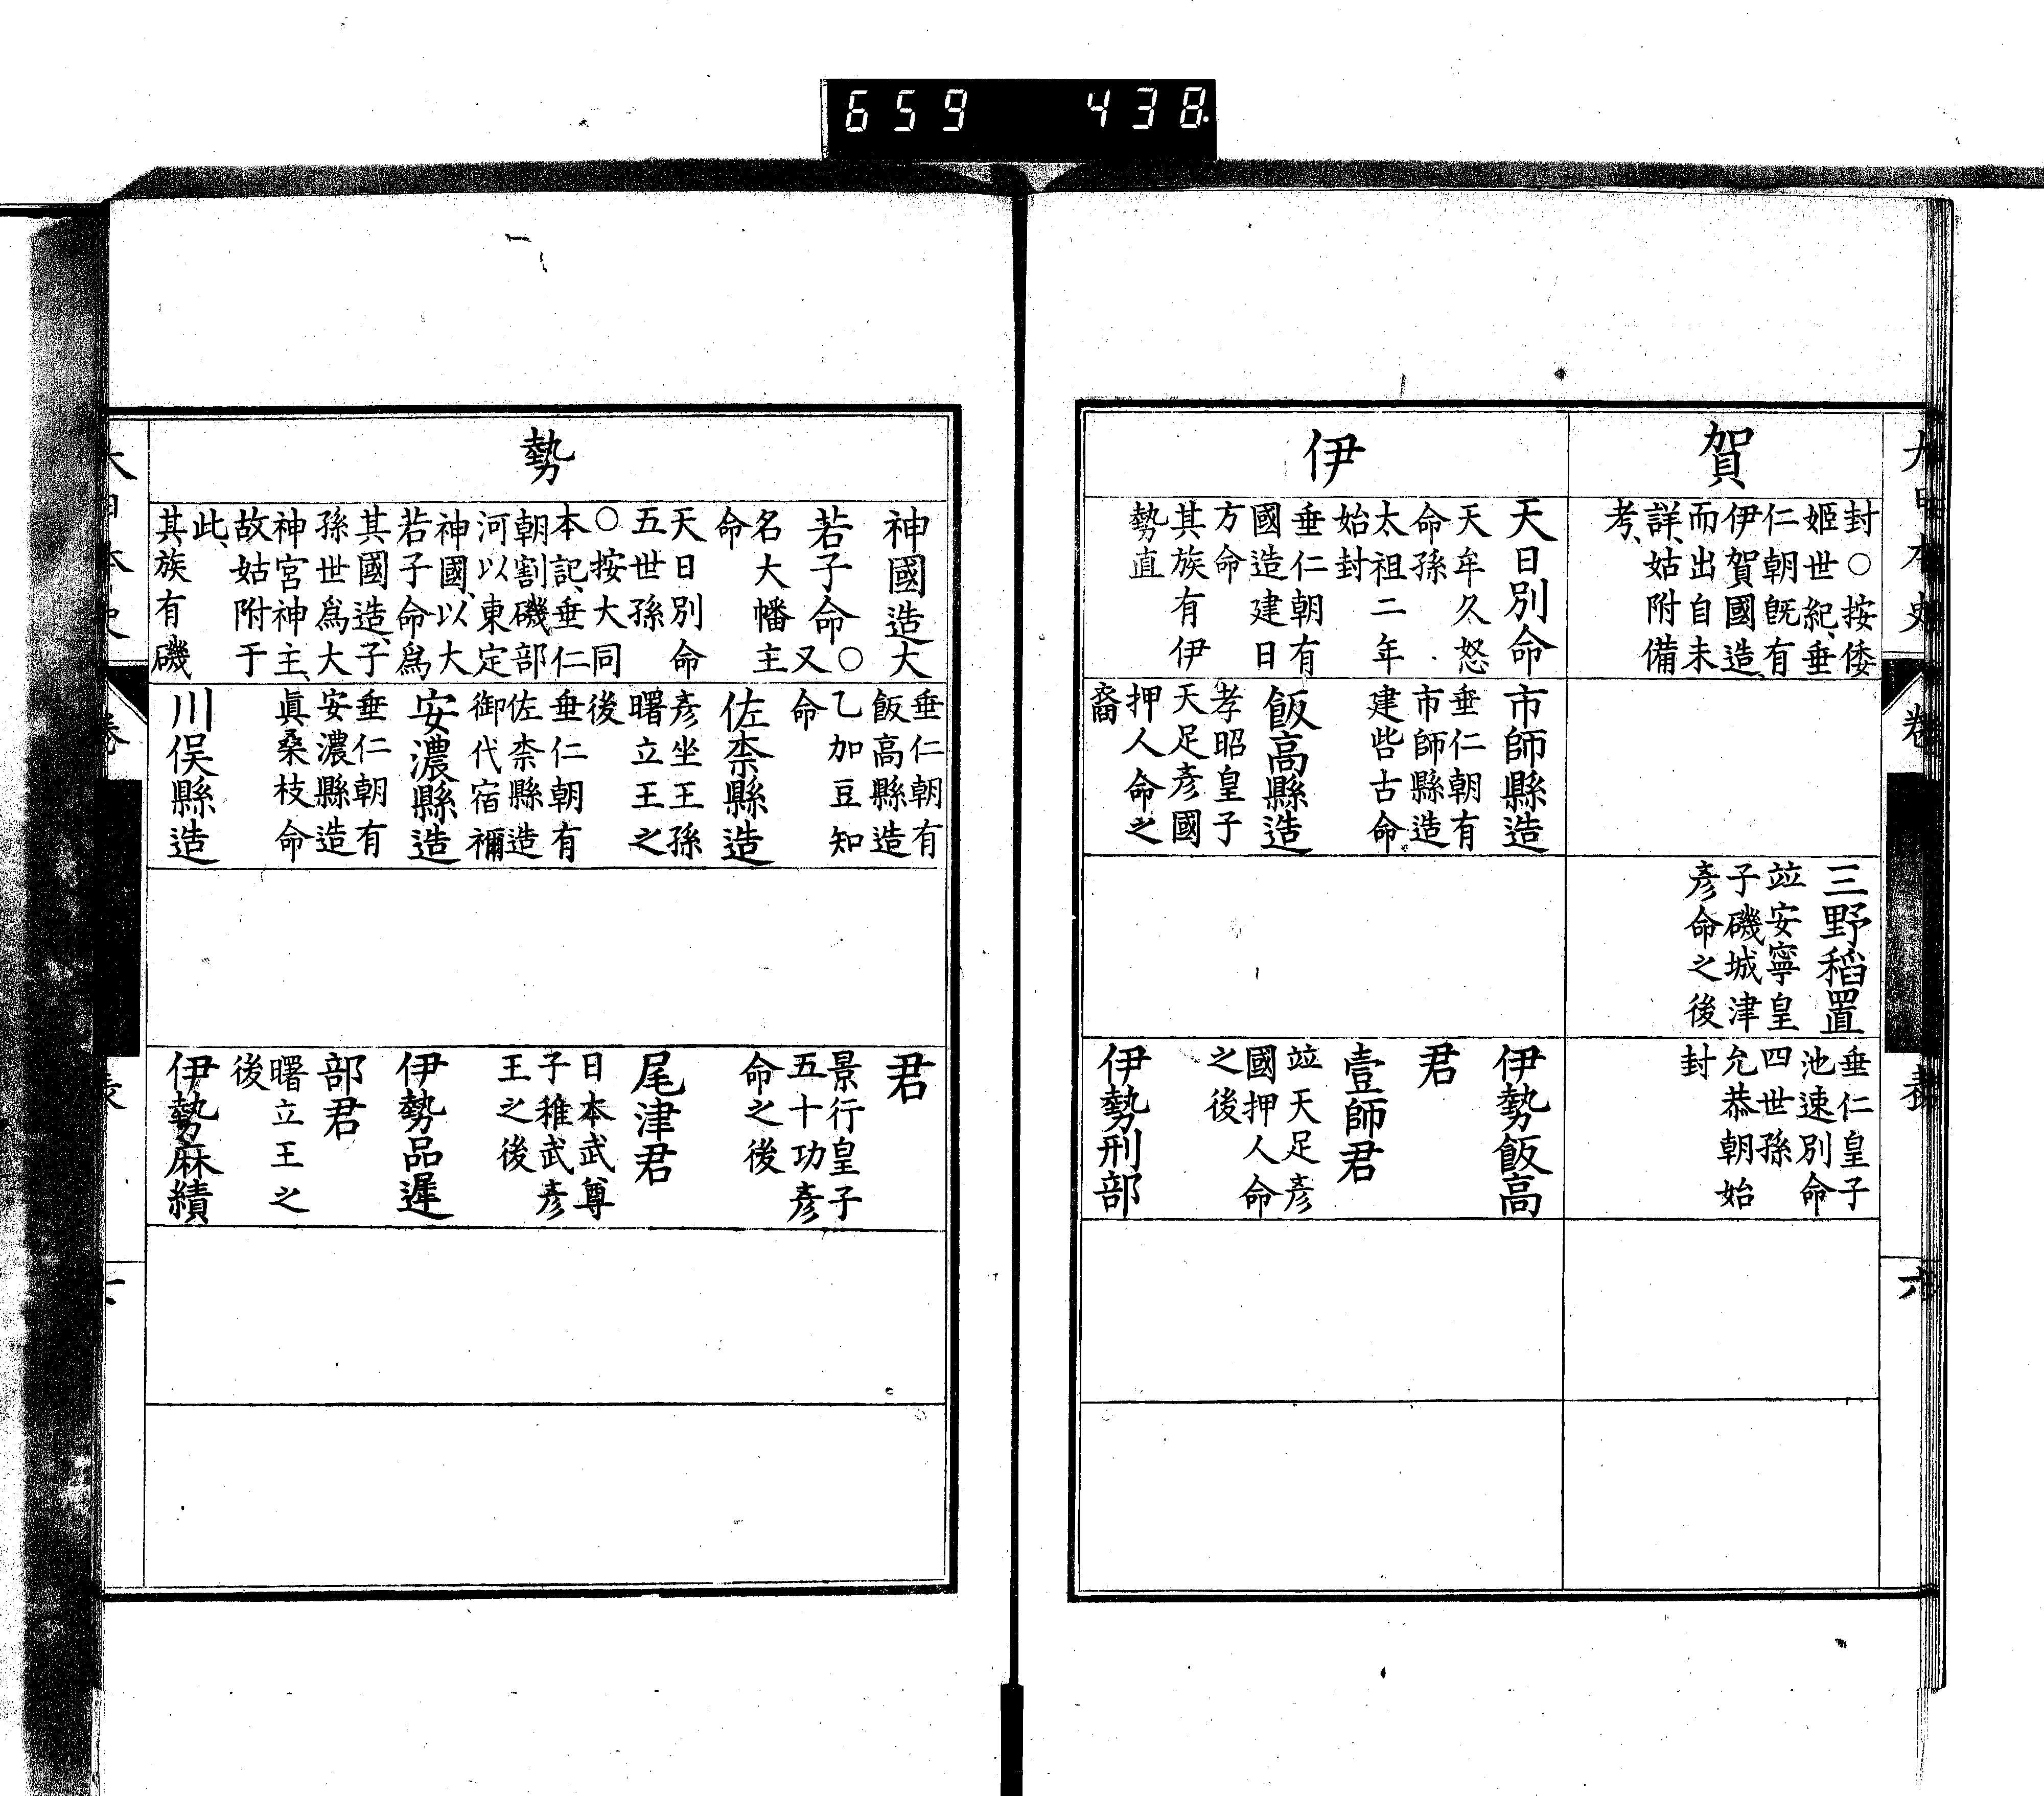 659 438
賀
封○按倭
姬世紀、垂
仁朝既有
伊賀國造、
而出自未
詳、姑附備
考、
三野稻置
竝安寧皇
子磯城津
彥命之後
垂仁皇子
池速別命
四世孫
允恭朝始
封
伊
天日別命
天牟久怒
命孫
太祖二年
始封
垂仁朝有
國造建日
方命
其族有伊
勢直
市師縣造
垂仁朝有
市師縣造
建呰古命
飯高縣造
孝昭皇子
天足彥國
押人命之
裔
伊勢飯高
君
壹師君
竝天足彥
國押人命
之後
伊勢刑部
勢
神國造大
若子命○又
名大幡主
命
天日別命
五世孫
○按大同
本記、垂仁
朝割磯部
河以東定
神國、以大
若子命爲
其國造、子
孫世爲大
神宮神主、
故姑附于
此、
其族有磯
垂仁朝有
飯高縣造
乙加豆知
命
佐柰縣造
彥坐王孫
曙立王之
後
垂仁朝有
佐柰縣造
御代宿禰
安濃縣造
垂仁朝有
安濃縣造
眞桑枝命
川俣縣造
君
景行皇子
五十功彥
命之後
尾津君
日本武尊
子稚武彥
王之後
伊勢品遲
部君
曙立王之
後
伊勢麻績